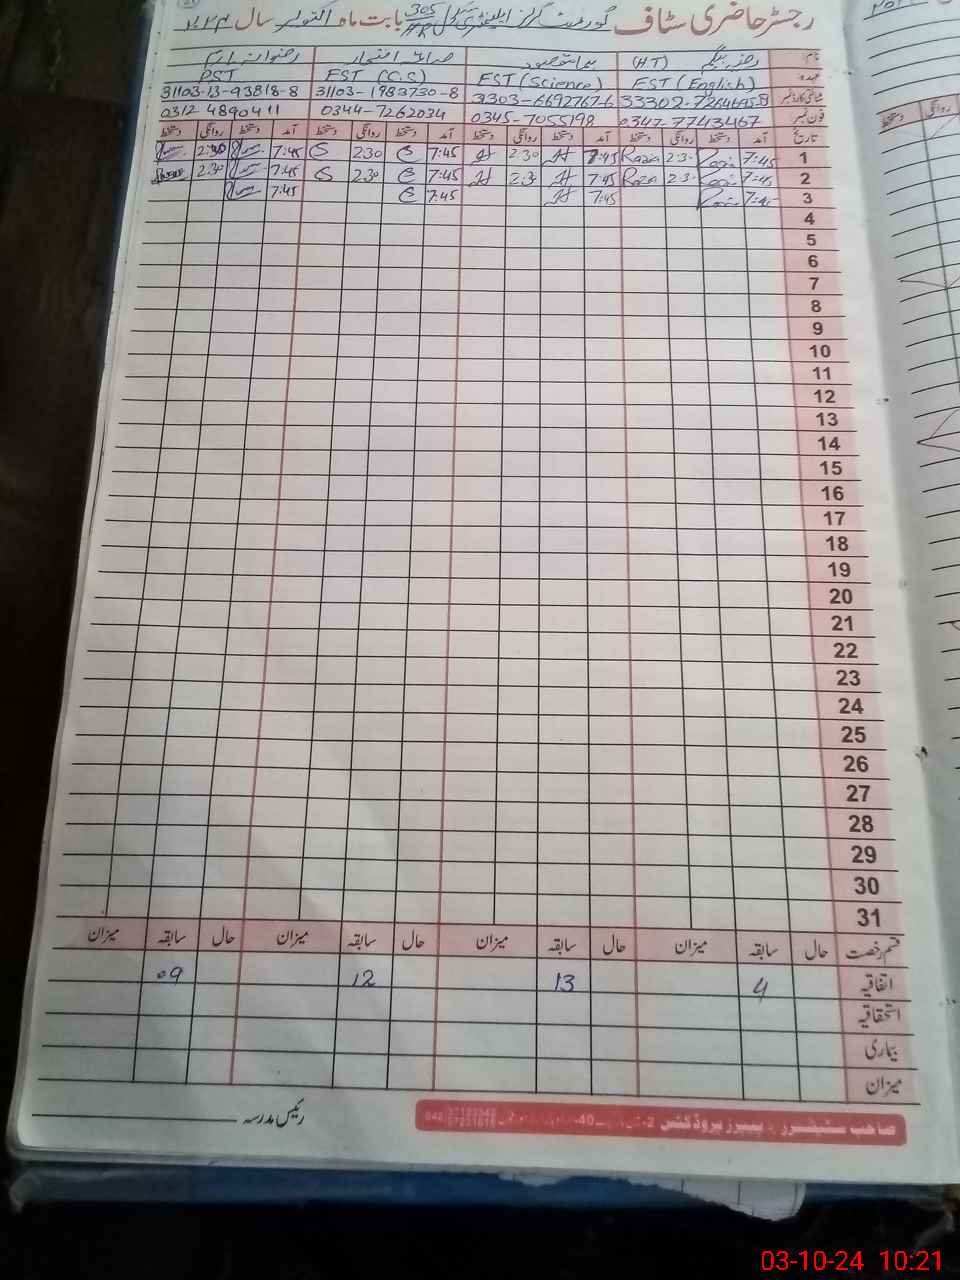 رجسٹر حاضری سٹاف گورنمنٹ گرلز ایلیمنٹری سکول 305/HR بابت ماہ اکتوبر سال
نام: رضیہ بیگم (H.T)
عہدہ EST (English) EST (Science) EST (C.S) PST
شناختی کارڈ نمبر 31103-1983730-8 31103-13-93818-8
فون نمبر 0347-7743467 0345-7055198 0344-7262034 0312 4890411
تاریخ آمد دستخط روانگی دستخط آمد دستخط روانگی دستخط آمد دستخط روانگی دستخط آمد دستخط روانگی دستخط
1 7:45 2:3 Razia 7:45 2:30 7:45 2:30 7:45
2 7:45 2:3 Razia 7:45 2:30 7:45 2:30 7:45 2:30
3 7:45 7:45 7:45 7:45
4
5
6
7
8
9
10
11
12
13
14
15
16
17
18
19
20
21
22
23
24
25
26
27
28
29
30
31
قسم رخصت حال سابقہ میزان حال سابقہ میزان حال سابقہ میزان حال سابقہ میزان
اتفاقیہ 4 13 12 09
استحقاقیہ
بیماری
میزان
رئیس مدرسہ
صاحب سٹیشنرز پیپرز پروڈکٹس
03-10-24 10:21